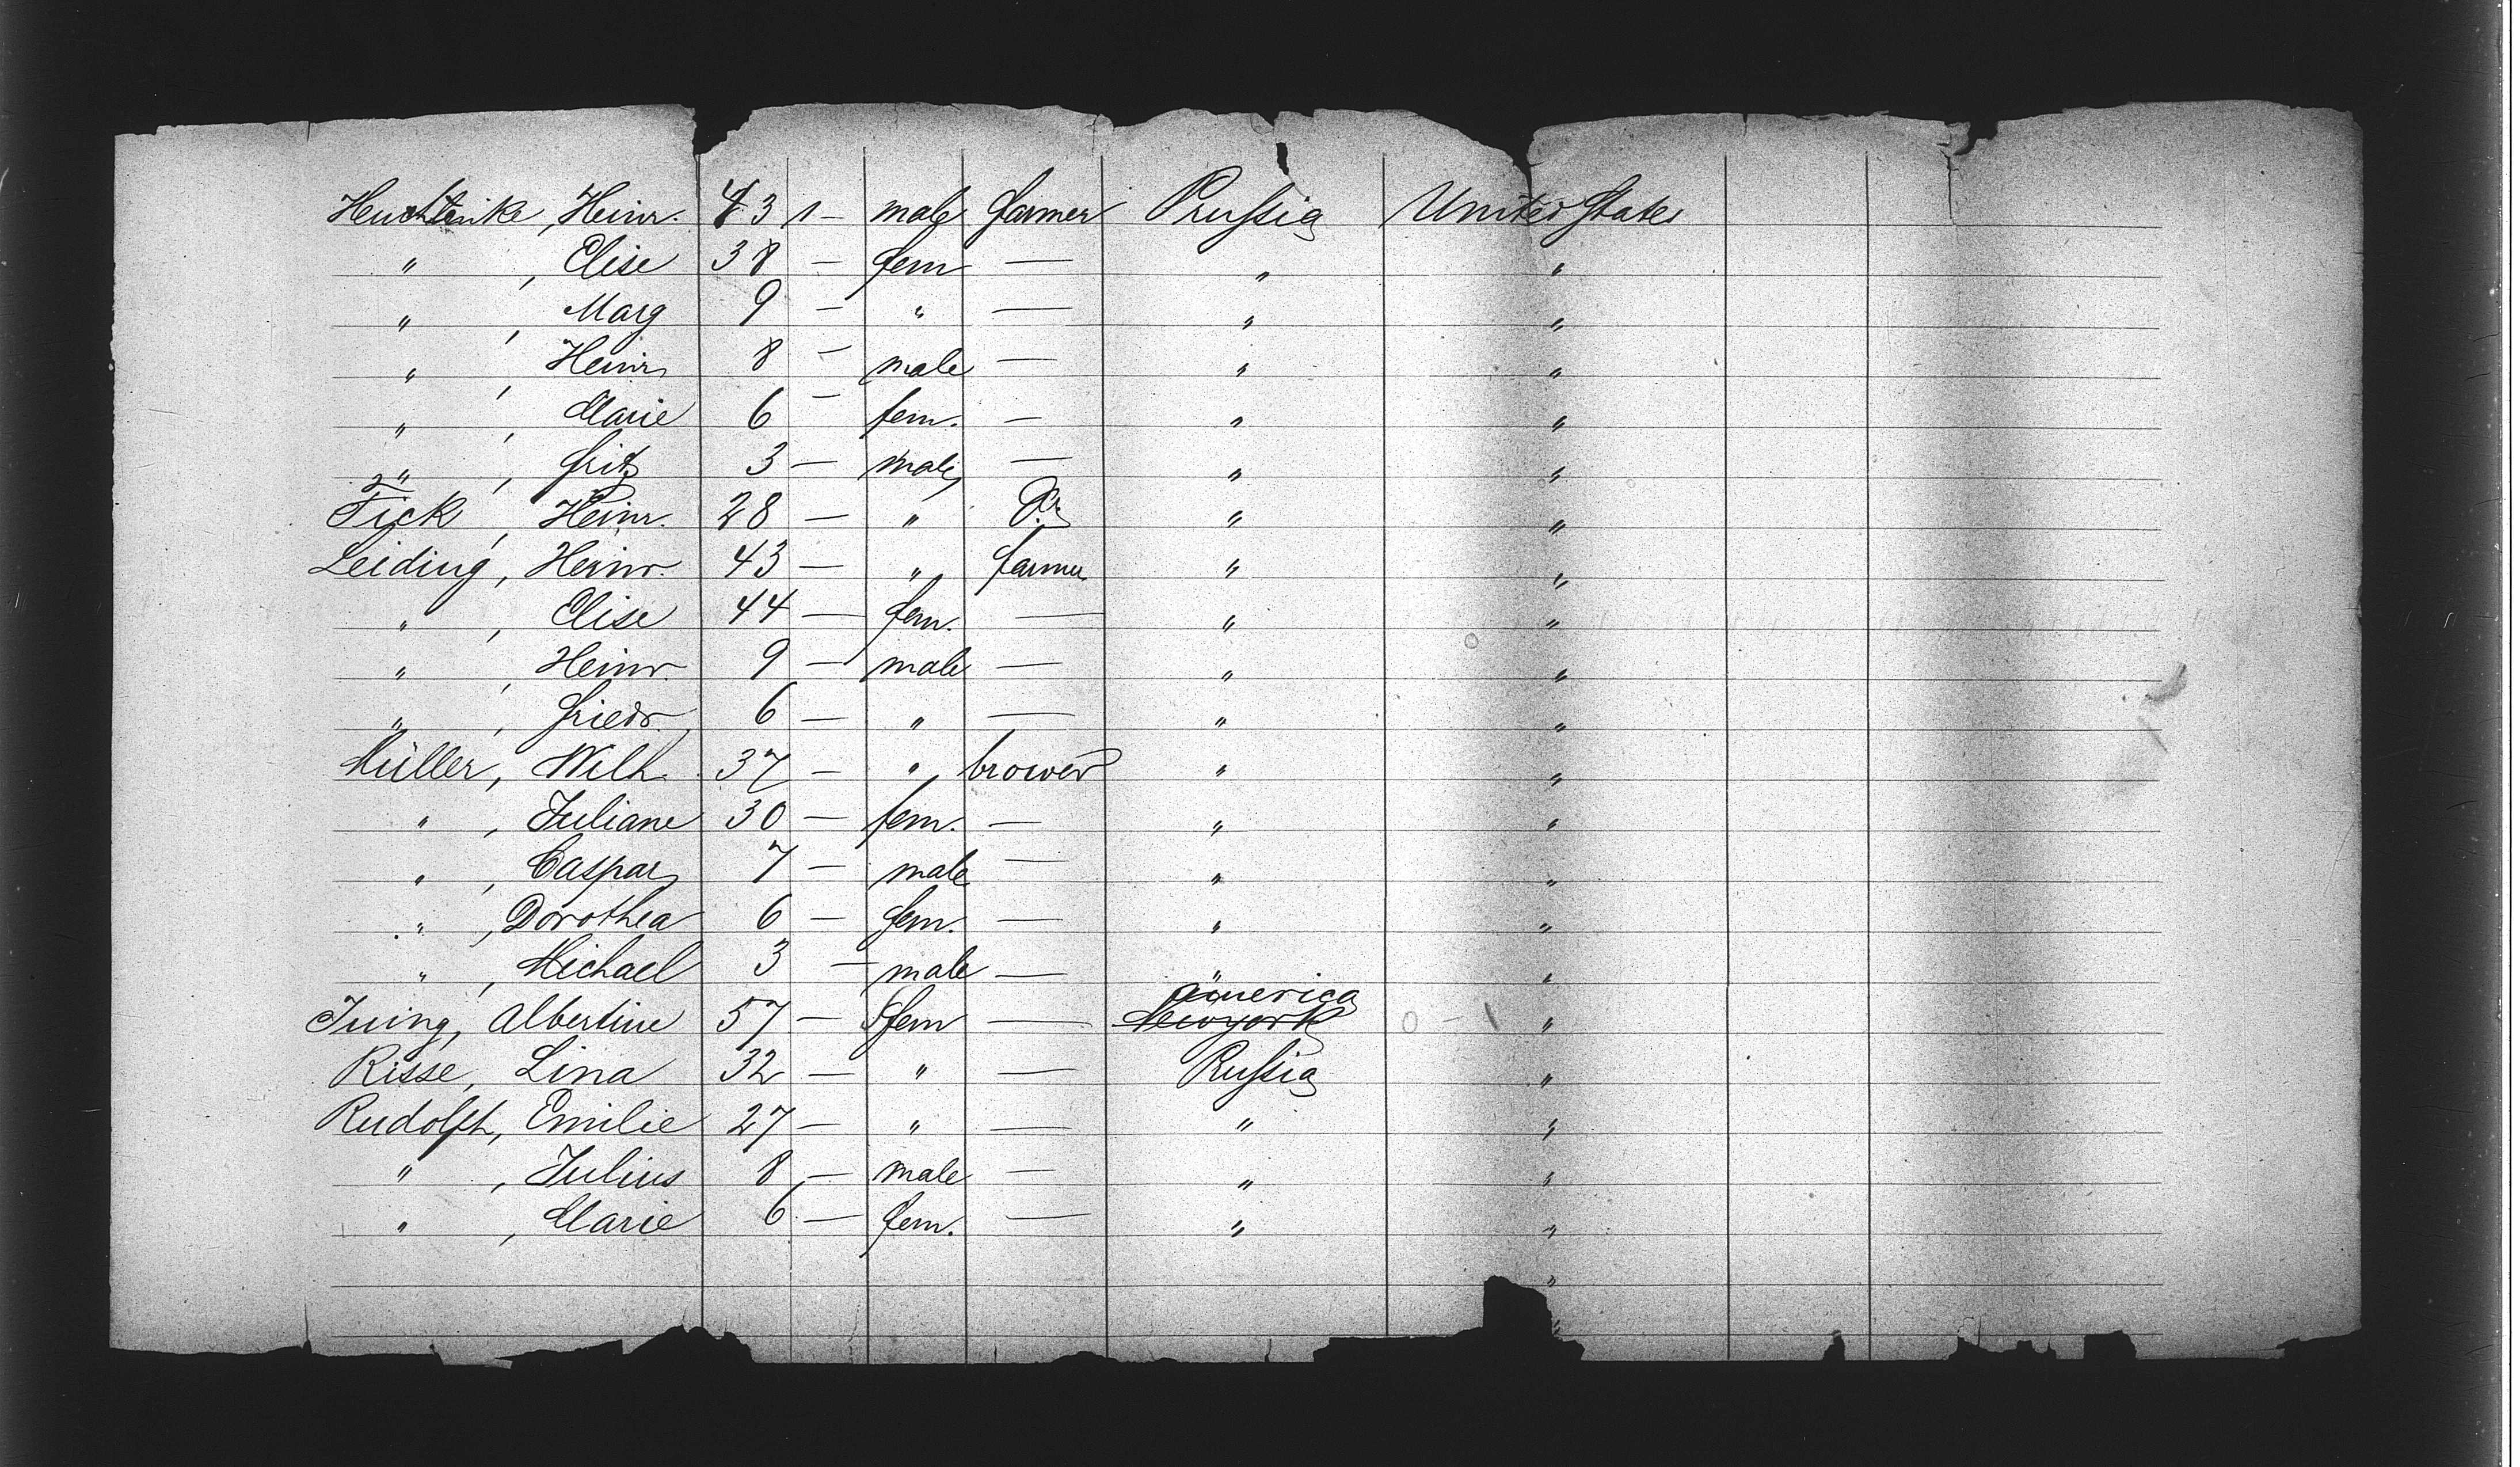 Huchtenke, Heinr. 43 1 — male farmer Prussia United States
" , Elise 38 — fem — " "
" , Marg 9 — " — " "
" , Heinr 8 — male — " "
" , Marie 6 — fem. — " "
" , Fritz 3 — male — " "
Fick, Heinr. 28 — " " "
Leiding, Heinr. 43 — " farmer " "
" , Elise 44 — fem. — " "
" , Heinr. 9 — male — " "
" , Friedr. 6 — " — " "
Müller, Wilh. 37 — " brower " "
" , Juliane 30 — fem. — " "
" , Caspar 7 — male — " "
" , Dorothea 6 — fem. — " "
" , Michael 3 — male — " "
america
Juing, Albertine 57 — fem — Newyork "
Risse, Lina 32 — " — Prussia "
Rudolph, Emilie 27 — " — " "
" , Julius 8 — male — " "
" , Marie 6 — fem. — " "
"